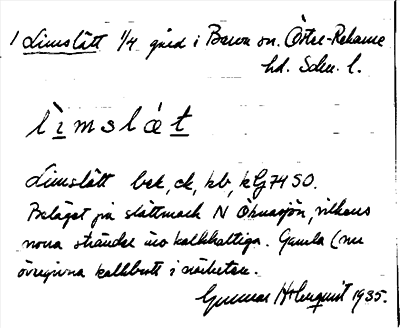 1 Limslätt 1/4 gård i Barva sn. Öster-Rekarne
hd. Söd. l.
lìmslæt
Limslätt bek, ck, kb, kG 74 SO.
Beläget på slättmark N Öknasjön, vilkens
norra stränder äro kalkhaltiga. Gamla (nu
övergivna kalkbrott i närheten.
Gunnar Holmquist 1935.